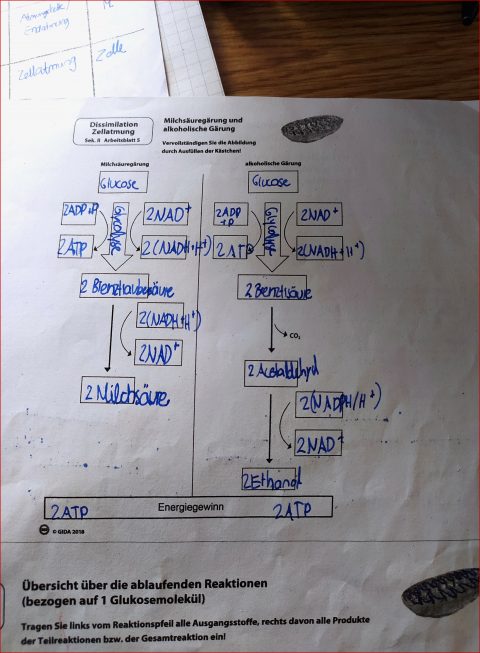 Atmungskette/
Endatmung
M
Zellatmung
Zelle
Dissimilation
Zellatmung
Sek. II Arbeitsblatt 5
Milchsäuregärung und
alkoholische Gärung
Vervollständigen Sie die Abbildung
durch Ausfüllen der Kästchen!
Milchsäuregärung
alkoholische Gärung
Glucose
Glucose
2ADP+P
Glycolyse
2NAD+
2ADP
+P
Glycolyse
2NAD+
2ATP
2(NADH+H+)
2ATP
2(NADH+H+)
2 Brenztraubensäure
2 Brenztrsäure
2(NADH+H+)
2NAD+
CO₂
2 Milchsäure
2 Acetaldehyd
2(NADPH/H+)
2NAD+
2 Ethanol
2ATP
Energiegewinn
2ATP
© GIDA 2018
Übersicht über die ablaufenden Reaktionen
(bezogen auf 1 Glukosemolekül)
Tragen Sie links vom Reaktionspfeil alle Ausgangsstoffe, rechts davon alle Produkte
der Teilreaktionen bzw. der Gesamtreaktion ein!